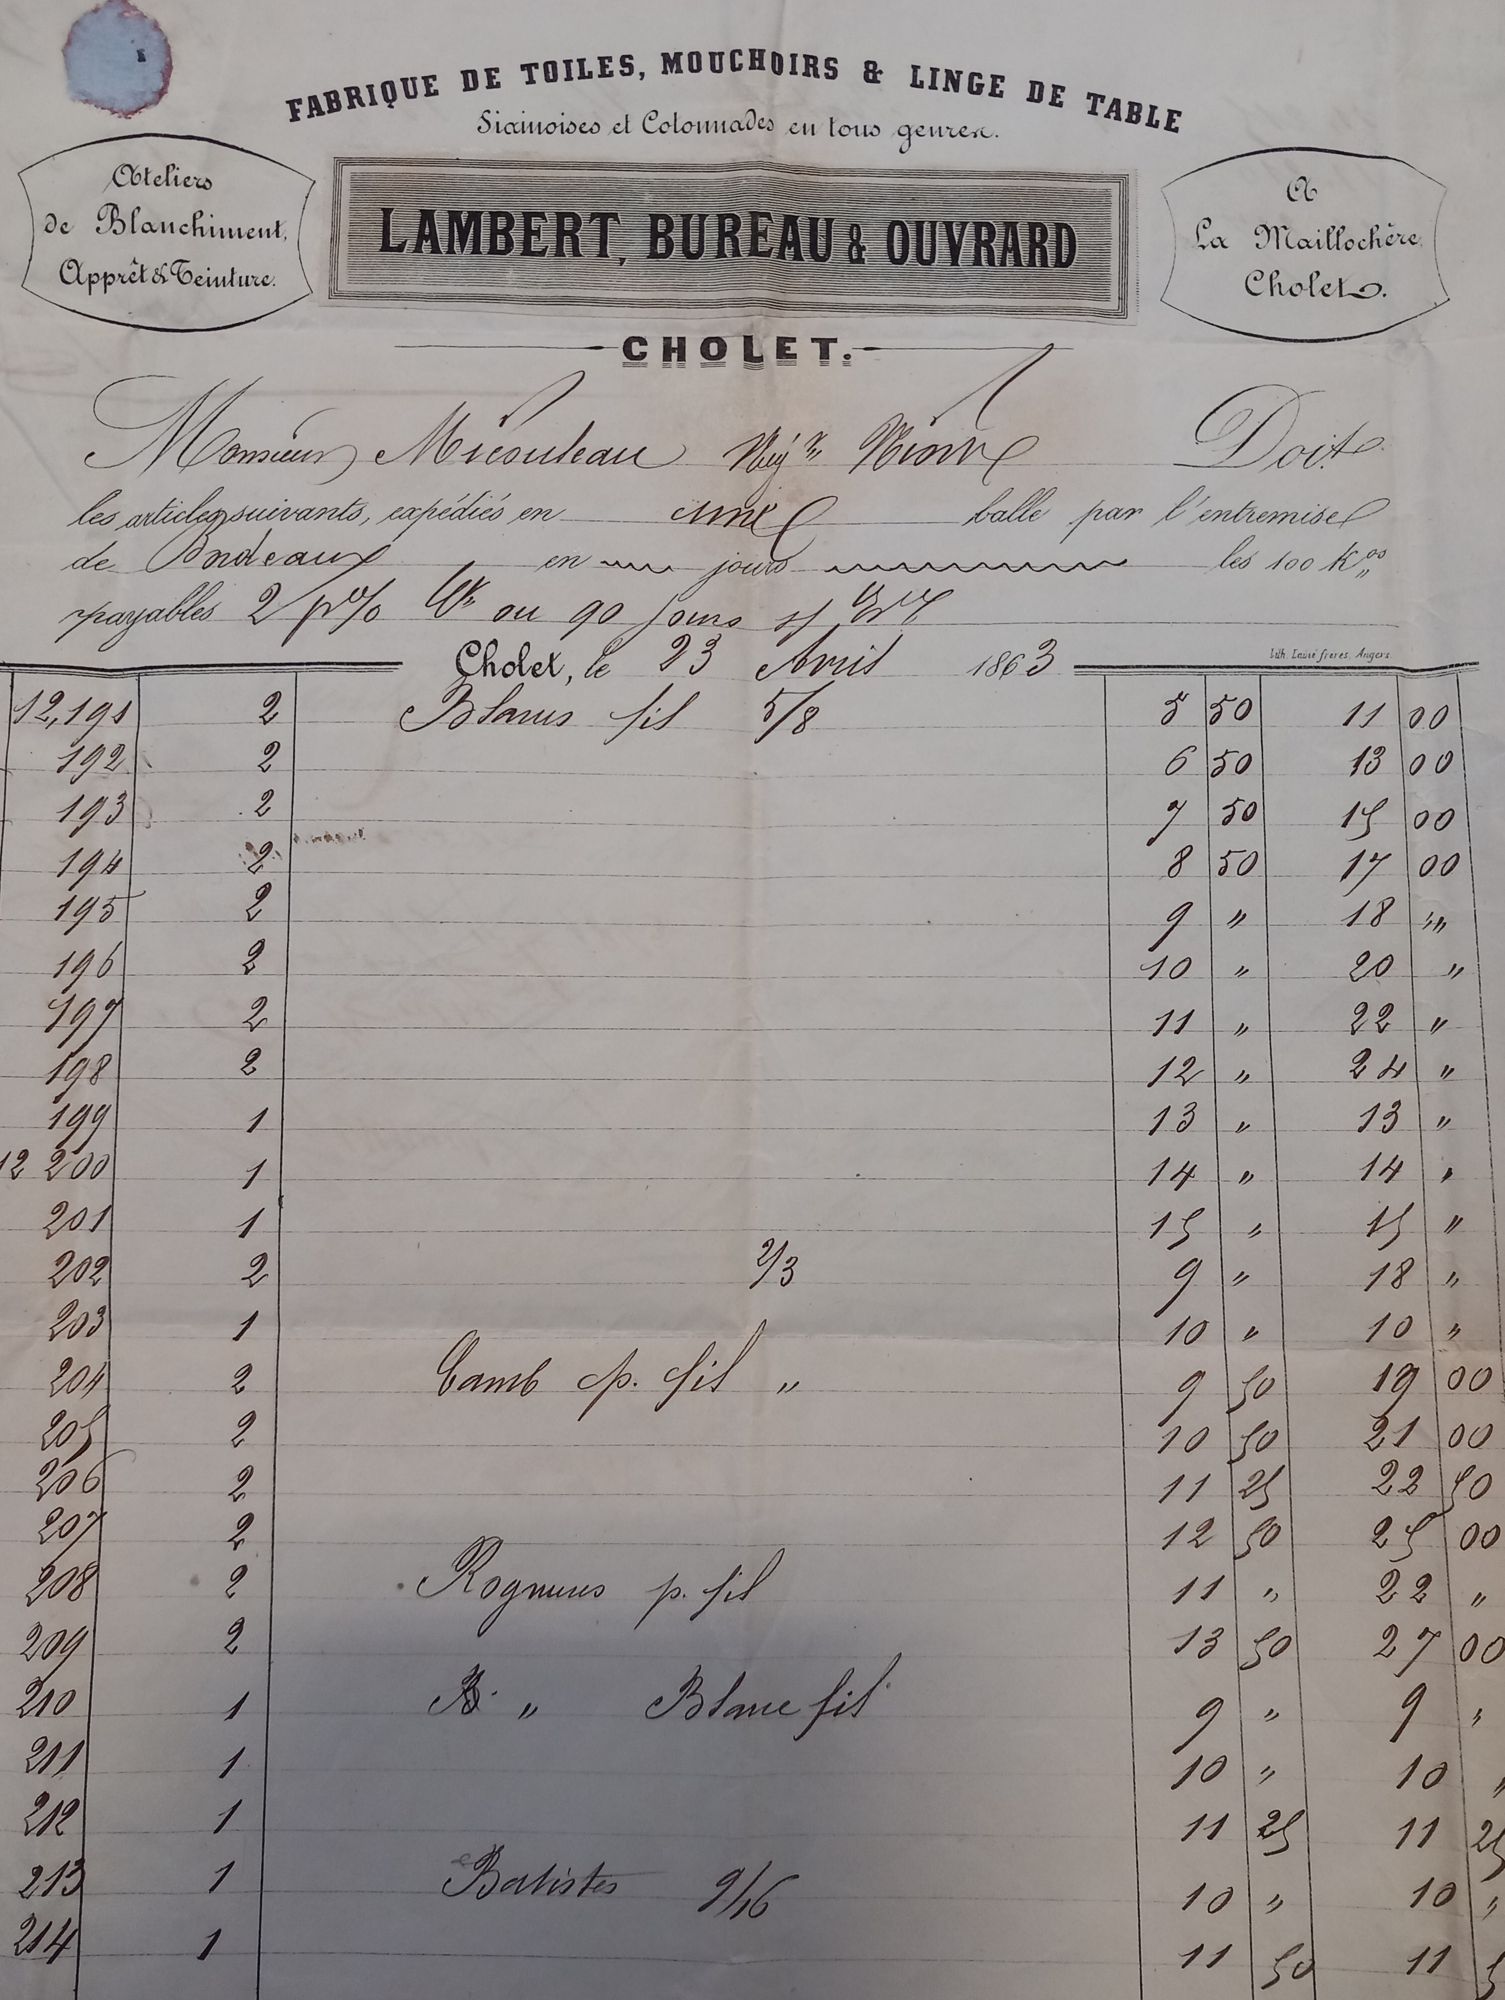 FABRIQUE DE TOILES, MOUCHOIRS & LINGE DE TABLE
Siamoises et Cotonnades en tous genres.
Ateliers
de Blanchiment,
Apprêt & Teinture.
LAMBERT, BUREAU & OUVRARD
A
La Maillochère,
Cholet.
CHOLET.
Monsieur Micouleau Nég.t Niort Doit
les articles suivants, expédiés en une balle par l'entremise
de Bordeaux en jours les 100 K.os
payables 2 p% ou 90 jours s/
Cholet, le 23 Avril 1863
Lith. Lainé frères, Angers.
12,191 2 Blancs fil 5/8 5 50 11 00
192 2 6 50 13 00
193 2 7 50 15 00
194 2 8 50 17 00
195 2 9 " 18 "
196 2 10 " 20 "
197 2 11 " 22 "
198 2 12 " 24 "
199 1 13 " 13 "
12 200 1 14 " 14 "
201 1 15 " 15 "
202 2 2/3 9 " 18 "
203 1 10 " 10 "
204 2 Camb p. fil " 9 50 19 00
205 2 10 50 21 00
206 2 11 25 22 50
207 2 12 50 25 00
208 2 p. fil 11 " 22 "
209 2 13 50 27 00
210 1 " Blanc fil 9 " 9 "
211 1 10 " 10 "
212 1 11 25 11 25
213 1 Batistes 9/16 10 " 10 "
214 1 11 50 11 5